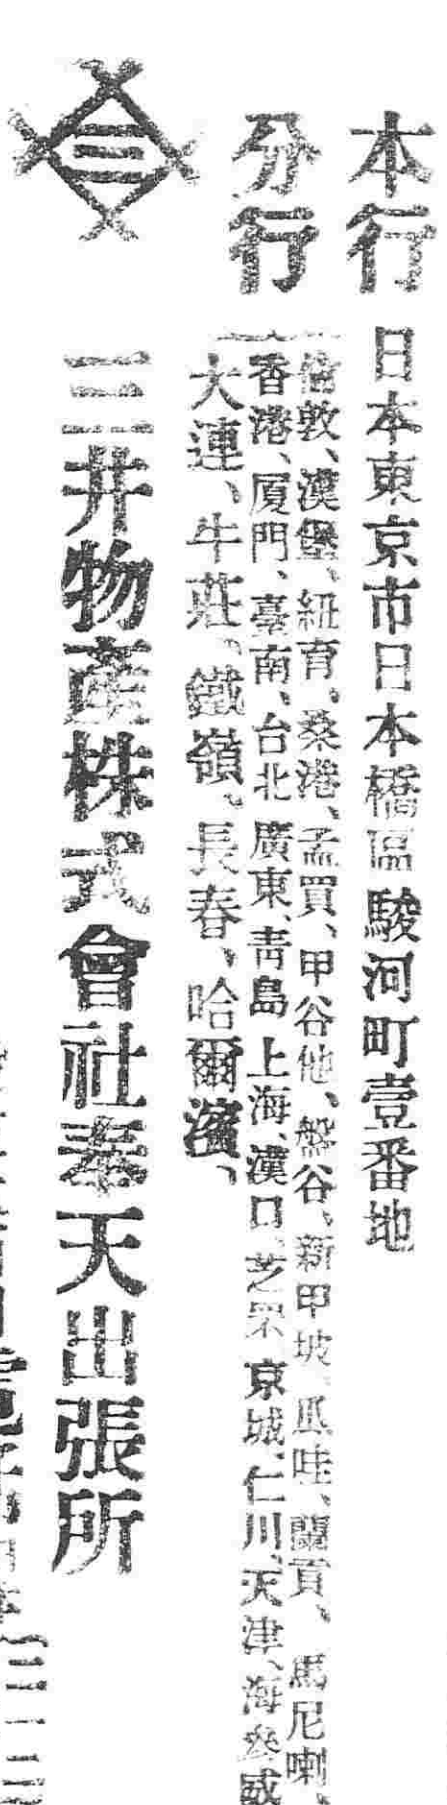 本行 日本東京市日本橋區駿河町壹番地
分行 倫敦、漢堡、紐育、桑港、孟買、甲谷他、盤谷、新甲坡、爪哇、蘭貢、馬尼喇、
香港、厦門、臺南、台北 廣東、青島 上海、漢口、芝罘 京城、仁川、天津、海參威
大連、牛莊、鐵嶺、長春、哈爾濱、
三井物產株式會社奉天出張所